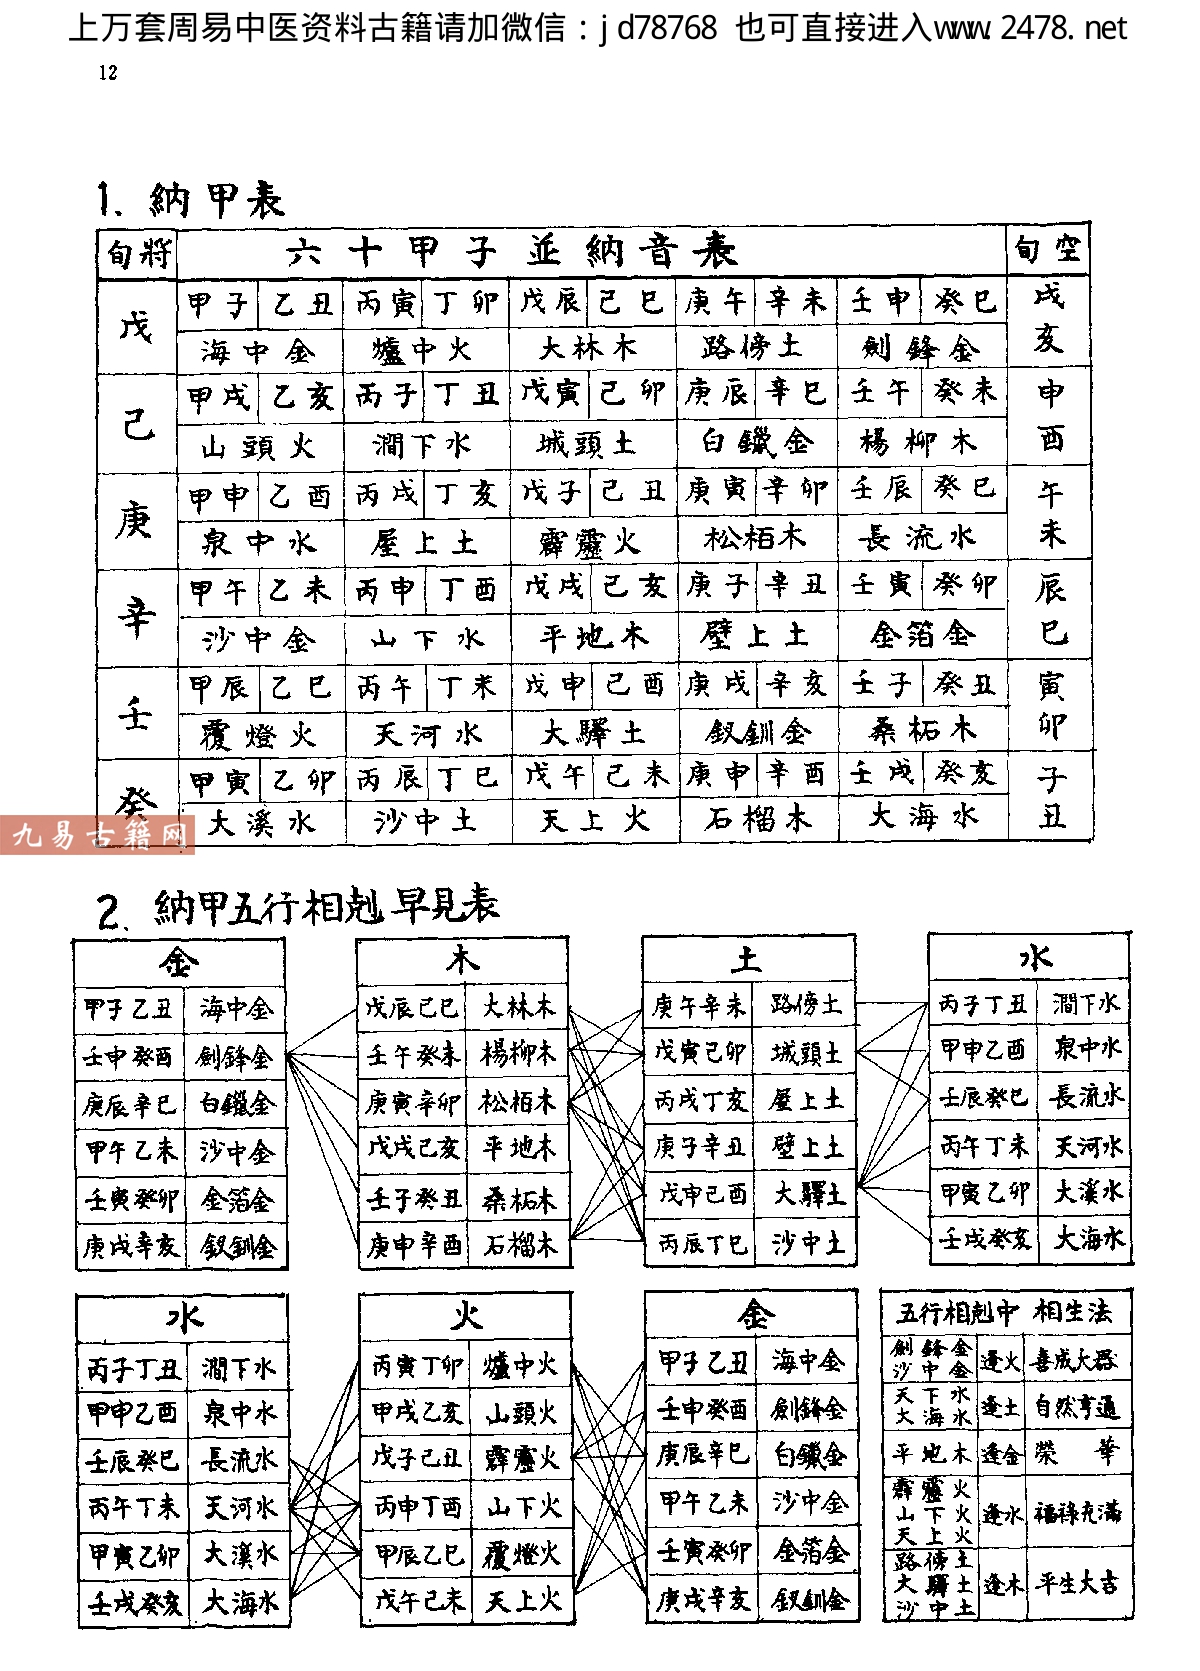 上万套周易中医资料古籍请加微信：jd78768 也可直接进入www.2478.net
12
1. 納甲表
旬將 六十甲子並納音表 旬空
戊 甲子 乙丑 丙寅 丁卯 戊辰 己巳 庚午 辛未 壬申 癸巳 戌亥
海中金 爐中火 大林木 路傍土 劍鋒金
己 甲戌 乙亥 丙子 丁丑 戊寅 己卯 庚辰 辛巳 壬午 癸未 申酉
山頭火 澗下水 城頭土 白鑞金 楊柳木
庚 甲申 乙酉 丙戌 丁亥 戊子 己丑 庚寅 辛卯 壬辰 癸巳 午未
泉中水 屋上土 霹靂火 松栢木 長流水
辛 甲午 乙未 丙申 丁酉 戊戌 己亥 庚子 辛丑 壬寅 癸卯 辰巳
沙中金 山下水 平地木 壁上土 金箔金
壬 甲辰 乙巳 丙午 丁未 戊申 己酉 庚戌 辛亥 壬子 癸丑 寅卯
覆燈火 天河水 大驛土 釵釧金 桑柘木
癸 甲寅 乙卯 丙辰 丁巳 戊午 己未 庚申 辛酉 壬戌 癸亥 子丑
大溪水 沙中土 天上火 石榴木 大海水
九易古籍网
2. 納甲五行相剋早見表
金 木 土 水
甲子乙丑 海中金 戊辰己巳 大林木 庚午辛未 路傍土 丙子丁丑 澗下水
壬申癸酉 劍鋒金 壬午癸未 楊柳木 戊寅己卯 城頭土 甲申乙酉 泉中水
庚辰辛巳 白鑞金 庚寅辛卯 松栢木 丙戌丁亥 屋上土 壬辰癸巳 長流水
甲午乙未 沙中金 戊戌己亥 平地木 庚子辛丑 壁上土 丙午丁未 天河水
壬寅癸卯 金箔金 壬子癸丑 桑柘木 戊申己酉 大驛土 甲寅乙卯 大溪水
庚戌辛亥 釵釧金 庚申辛酉 石榴木 丙辰丁巳 沙中土 壬戌癸亥 大海水
水 火 金
丙子丁丑 澗下水 丙寅丁卯 爐中火 甲子乙丑 海中金
甲申乙酉 泉中水 甲戌乙亥 山頭火 壬申癸酉 劍鋒金
壬辰癸巳 長流水 戊子己丑 霹靂火 庚辰辛巳 白鑞金
丙午丁未 天河水 丙申丁酉 山下火 甲午乙未 沙中金
甲寅乙卯 大溪水 甲辰乙巳 覆燈火 壬寅癸卯 金箔金
壬戌癸亥 大海水 戊午己未 天上火 庚戌辛亥 釵釧金
五行相剋中 相生法
劍鋒金
沙中金 逢火 喜成大器
天下水
大海水 逢土 自然亨通
平地木 逢金 榮華
霹靂火
山下火
天上火 逢水 福祿充滿
路傍土
大驛土
沙中土 逢木 平生大吉